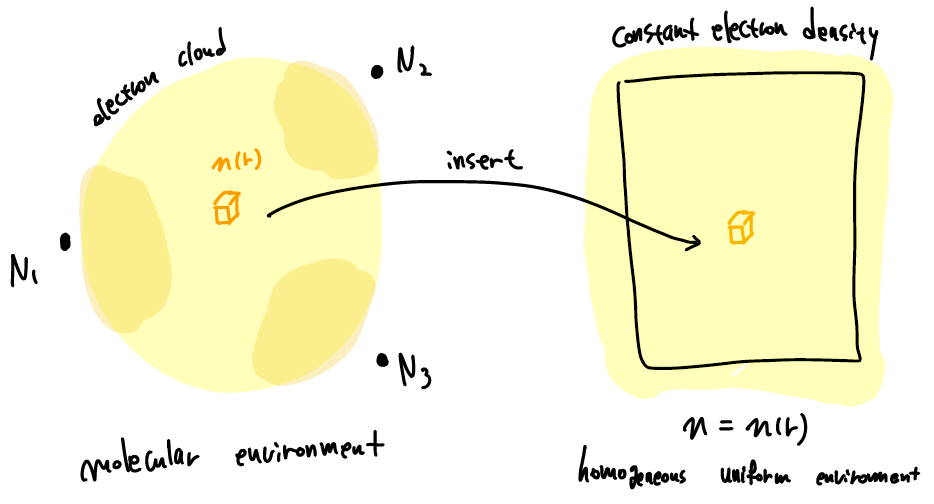 electron cloud
N₂
n(r)
N₁
N₃
molecular environment
insert
Constant electron density
n = n(r)
homogeneous uniform environment